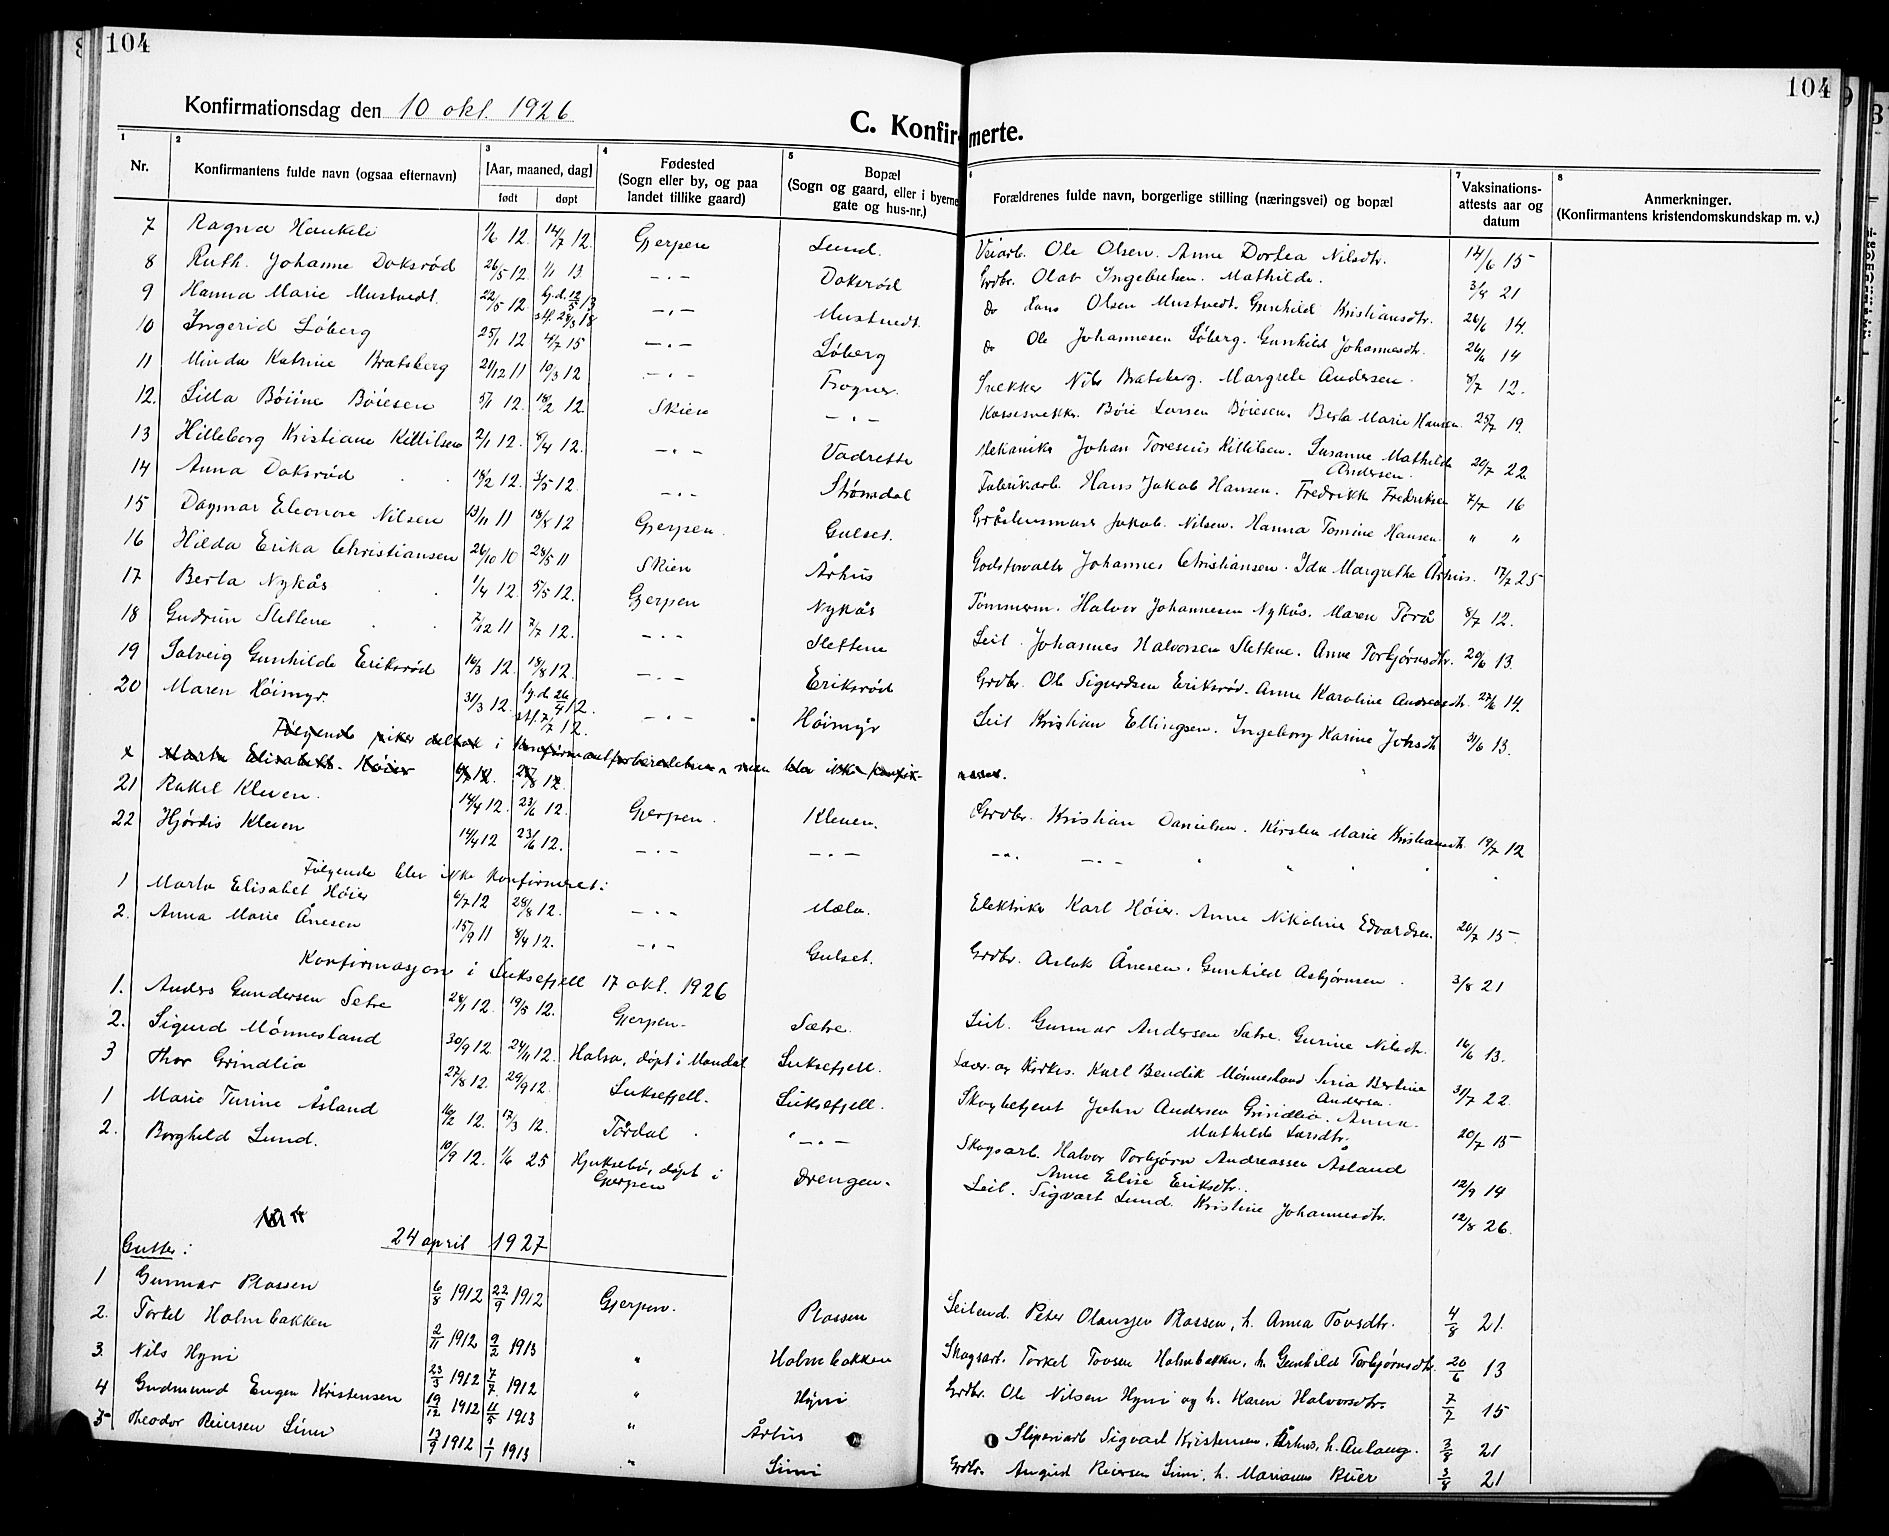 104
104
Konfirmationsdag den 10 okt. 1926
C. Konfirmerte.
1 2 3 4 5 6 7 8
Nr. Konfirmantens fulde navn (ogsaa efternavn) [Aar, maaned, dag] født døpt Fødested (Sogn eller by, og paa landet tillike gaard) Bopæl (Sogn og gaard, eller i byerne gate og hus-nr.) Forældrenes fulde navn, borgerlige stilling (næringsvei) og bopæl Vaksinations-attests aar og datum Anmerkninger. (Konfirmantens kristendomskundskap m. v.)
7 Ragna Haukeli 1/6 12. 14/7 12. Gjerpen Lund. Veiarb. Ole Olsen. Anne Dortea Nilsdtr. 14/6 15
8 Ruth Johanne Doksrød 26/5 12. 1/1 13 -"- Doksrød Grdbr. Olav Ingebretsen. Mathilde. 3/9 21
9 Hanna Marie Mustvedt. 22/5 12. -"- Mustvedt. do Hans Olsen Mustvedt. Gunhild Kristiansdtr. 26/6 14.
10 Ingerid Løberg 25/1 12 4/7 15 -"- Løberg do Ole Johannesen Løberg. Gunhild Johannesdtr. 26/6 14
11 Minda Katrine Bratsberg 21/12 11 10/3 12 -"- Frogner. Snekker Nils Bratsberg. Margrete Andersen. 8/7 12.
12. Lilla Bøiine Bøiesen 5/1 12. 18/2 12. Skien -"- Bøie Larsen Bøiesen. Berta Marie Hansen. 25/7 19.
13 Hilleborg Kristiane Kittilsen 2/1 12. 8/4 12. -"- Vadrette Mekaniker Johan Toresius Kittilsen. Susanne Mathilde Andersen. 20/7 22
14 Anna Doksrød 18/2 12. 3/5 12. -"- Strømdal Fabrikarb. Hans Jakob Hansen. Fredrikk Fredriksen 7/7 16
15 Dagmar Eleonore Nilsen 13/11 11 18/8 12 Gjerpen. Gulset. Jakob Nilsen. Hanna Tomine Hansen. " "
16 Hilda Erika Christiansen 26/10 10 28/5 11 Skien Århus Godsforvalter Johannes Christiansen. Ida Margrethe Århus. 17/7 25
17 Berta Nykås 1/4 12. 5/5 12. Gjerpen Nykås Tømmerm. Halvor Johannesen Nykås. Maren Torå 8/7 12.
18 Gudrun Slettene 7/12 11 7/7 12. -"- Slettene Leil. Johannes Halvorsen Slettene. Anne Torbjørnsdtr. 20/6 13.
19 Solveig Gunhilde Eriksrød 16/3 12. 18/8 12. -"- Eriksrød Grdbr. Ole Sigurdsen Eriksrød. Anne Karoline Andreasdtr. 27/6 14.
20 Maren Høimyr. 31/3 12. -"- Høimyr Leil. Kristian Ellingsen. Ingeborg Karine Johsdtr. 31/6 13.
Følgende piker deltok i konfirmantforberedelsen, men blev ikke konfirmeret.
x Marta Elisabeth Høier 6/7 12. 28/8 12.
21 Rakel Kleven. 14/4 12. 23/6 12. Gjerpen. Kleven. Grdbr. Kristian Danielsen. Kirsten Marie Kristiansdtr. 19/7 12
22 Hjørdis Kleven 14/4 12 23/6 12. -"- -"- -"- -"-
Følgende blev ikke konfirmeret:
1 Marta Elisabet Høier 6/7 12 28/8 12. -"- Mæla. Elektriker Karl Høier. Anne Nikoline Edvardsen. 20/7 15.
2. Anna Marie Ånesen 15/9 11 8/4 12. -"- Gulset. Grdbr. Aslak Ånesen. Gunhild Asbjørnsen. 3/8 21
Konfirmasjon i Luksefjell 17 okt. 1926
1. Anders Gundersen Setre 28/1 12. 19/5 12. Gjerpen. Sætre. Leil. Gunnar Andersen Sætre. Gurine Nilsdtr. 16/6 13.
2. Sigurd Mónnesland 30/9 12. 24/11 12. Halsa, døpt i Mandal Luksefjell. Lær. og Kirkes. Karl Bendik Mónnesland Bertine Andersen. 31/7 22.
3 Thor Grindlia 27/8 12. 29/9 12. Luksefjell. Luksefjell. Skogbetjent John Andersen Grindlia. Anna Mathilde Larsdtr. 20/7 15
1 Marie Turine Åsland 16/2 12. 17/3 12. Tørdal. " -"- Skogsarb. Halvor Torbjørn Andreassen Åsland Anne Elise Eriksdtr. 12/9 14
2. Borghild Lund. 10/9 12. 1/6 25 Hjuksebø, døpt i Gjerpen Drengen. Leil. Sigvart Lund. Kristine Johannesdtr. 12/8 26.
24 april 1927
Gutter:
1 Gunnar Plassen 6/8 1912 22/9 1912 Gjerpen. Plassen Leilend. Peter Olausjen Plassen, h. Anna Tovsdtr. 4/8 21.
2. Torkel Holmbakken 2/11 1912 9/2 1913 " Holmbakken Skogsarb. Torkel Tovsen Holmbakken, h. Gunhild Torbjørnsdtr. 20/6 13
3. Nils Hyni 23/3 1912 7/7 1912 " Hyni Grdbr. Ole Nilsen Hyni og h. Karen Halvorsdtr. 7/7 15
4 Gudmund Eugen Kristensen 19/12 1912 11/5 1913 " Århus Sliperiarb Sigvart Kristensen, Århus, h. Anlaug. 3/8 21
5 Theodor Reiersen Limi 13/9 1912 1/1 1913 " Limi Grdbr. August Reiersen Limi, h. Mariane Buer 3/8 21